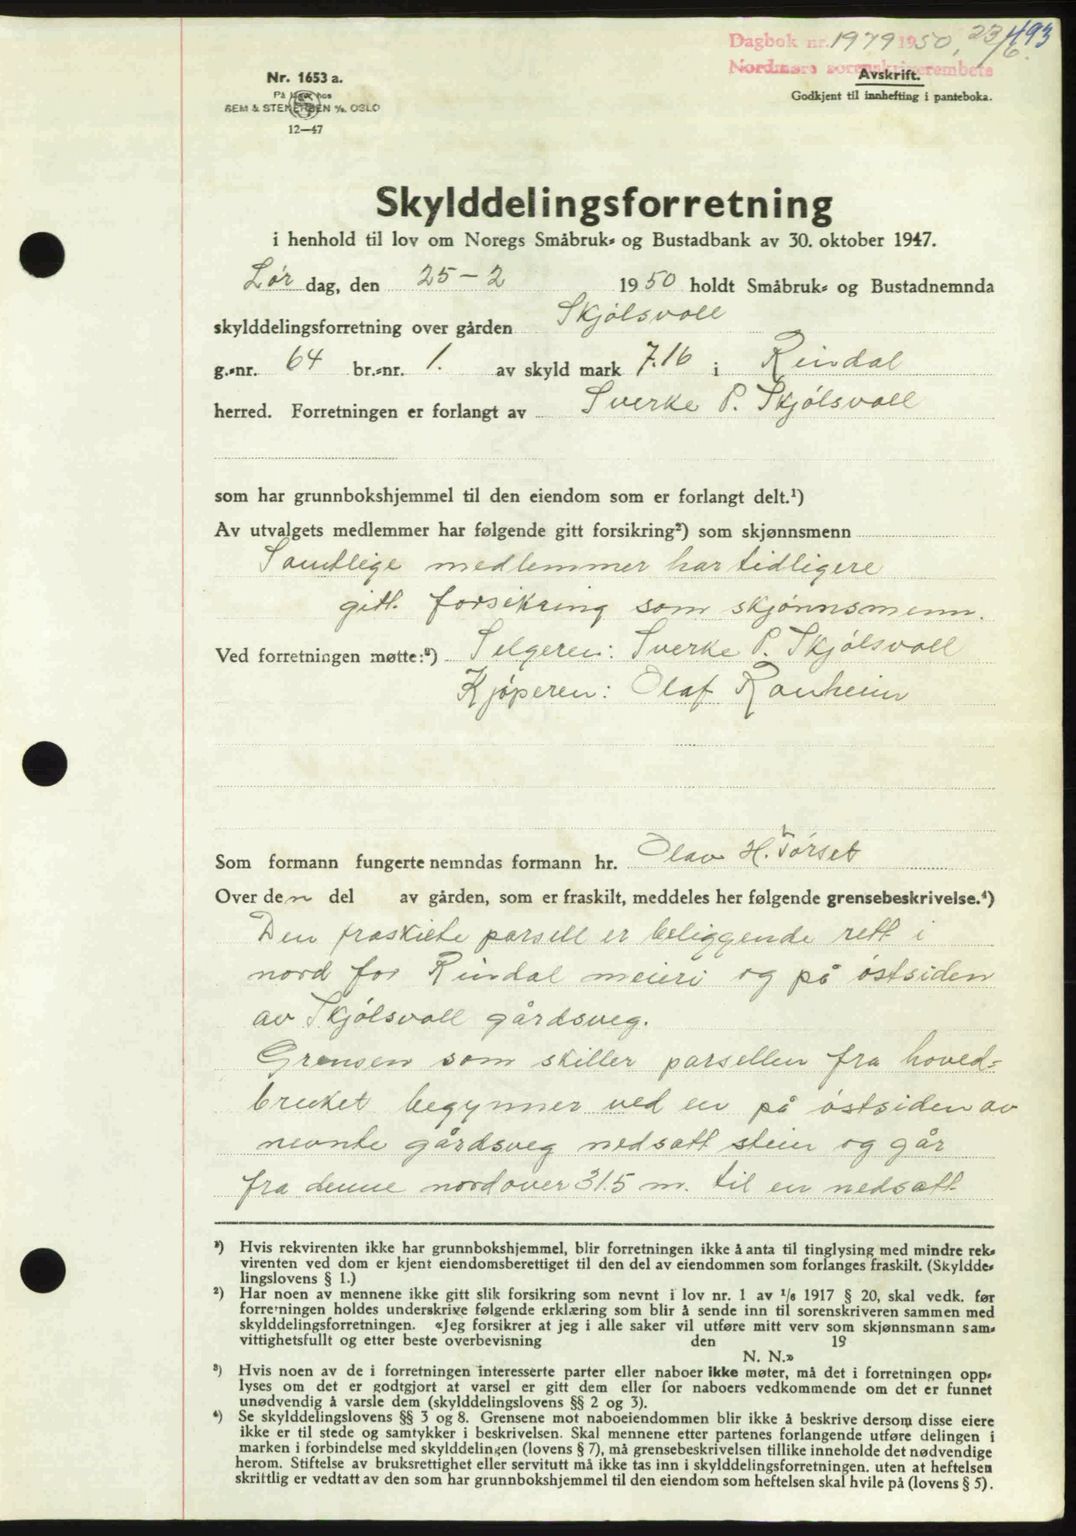 493
Dagbok nr. 1979 1950, 23/6.
Nordmøre sorenskriverembete
Avskrift.
Godkjent til innhefting i panteboka.
Nr. 1653 a.
På lager hos
SEM & STENERSEN A/S. OSLO
12—47
Skylddelingsforretning
i henhold til lov om Noregs Småbruk- og Bustadbank av 30. oktober 1947.
Lør dag, den 25-2 1950 holdt Småbruk- og Bustadnemnda
skylddelingsforretning over gården Skjølsvoll
g.-nr. 64 br.-nr. 1. av skyld mark 7.16 i Rindal
herred. Forretningen er forlangt av Sverke P. Skjølsvoll
som har grunnbokshjemmel til den eiendom som er forlangt delt.¹)
Av utvalgets medlemmer har følgende gitt forsikring²) som skjønnsmenn
Samtlige medlemmer har tidligere
gitt forsikring som skjønnsmenn.
Ved forretningen møtte:³) Selgeren: Sverke P. Skjølsvoll
Kjøperen: Olaf Ranheim
Som formann fungerte nemndas formann hr. Olav H. Tørset
Over den del av gården, som er fraskilt, meddeles her følgende grensebeskrivelse.⁴)
Den fraskilte parsell er beliggende rett i
nord for Rindal meieri og på østsiden
av Skjølsvoll gårdsveg.
Grensen som skiller parsellen fra hoved-
bruket begynner ved en på østsiden av
nevnte gårdsveg nedsatt stein og går
fra denne nordover 31.5 m. til en nedsatt
¹) Hvis rekvirenten ikke har grunnbokshjemmel, blir forretningen ikke å anta til tinglysing med mindre rek-
virenten ved dom er kjent eiendomsberettiget til den del av eiendommen som forlanges fraskilt. (Skyldde-
lingslovens § 1.)
²) Har noen av mennene ikke gitt slik forsikring som nevnt i lov nr. 1 av 1/6 1917 § 20, skal vedk. før
forretningen holdes underskrive følgende erklæring som blir å sende inn til sorenskriveren sammen med
skylddelingsforretningen. «Jeg forsikrer at jeg i alle saker vil utføre mitt verv som skjønnsmann sam-
vittighetsfullt og etter beste overbevisning den 19
N. N.»
³) Hvis noen av de i forretningen interesserte parter eller naboer ikke møter, må det i forretningen opp-
lyses om det er godtgjort at varsel er gitt dem eller for naboers vedkommende om det er funnet
unødvendig å varsle dem (skylddelingslovens §§ 2 og 3).
⁴) Se skylddelingslovens §§ 3 og 8. Grensene mot naboeiendommen blir ikke å beskrive dersom disse eiere
ikke er til stede og samtykker i beskrivelsen. Skal mennene etter partenes forlangende utføre delingen i
marken i forbindelse med skylddelingen (lovens § 7), må grensebeskrivelsen tillike inneholde det nødvendige
herom. Stiftelse av bruksrettighet eller servitutt må ikke tas inn i skylddelingsforretningen, uten at heftelsen
skriftlig er vedtatt av den som har grunnbokshjemmel til den eiendom som heftelsen skal hvile på (lovens § 5).